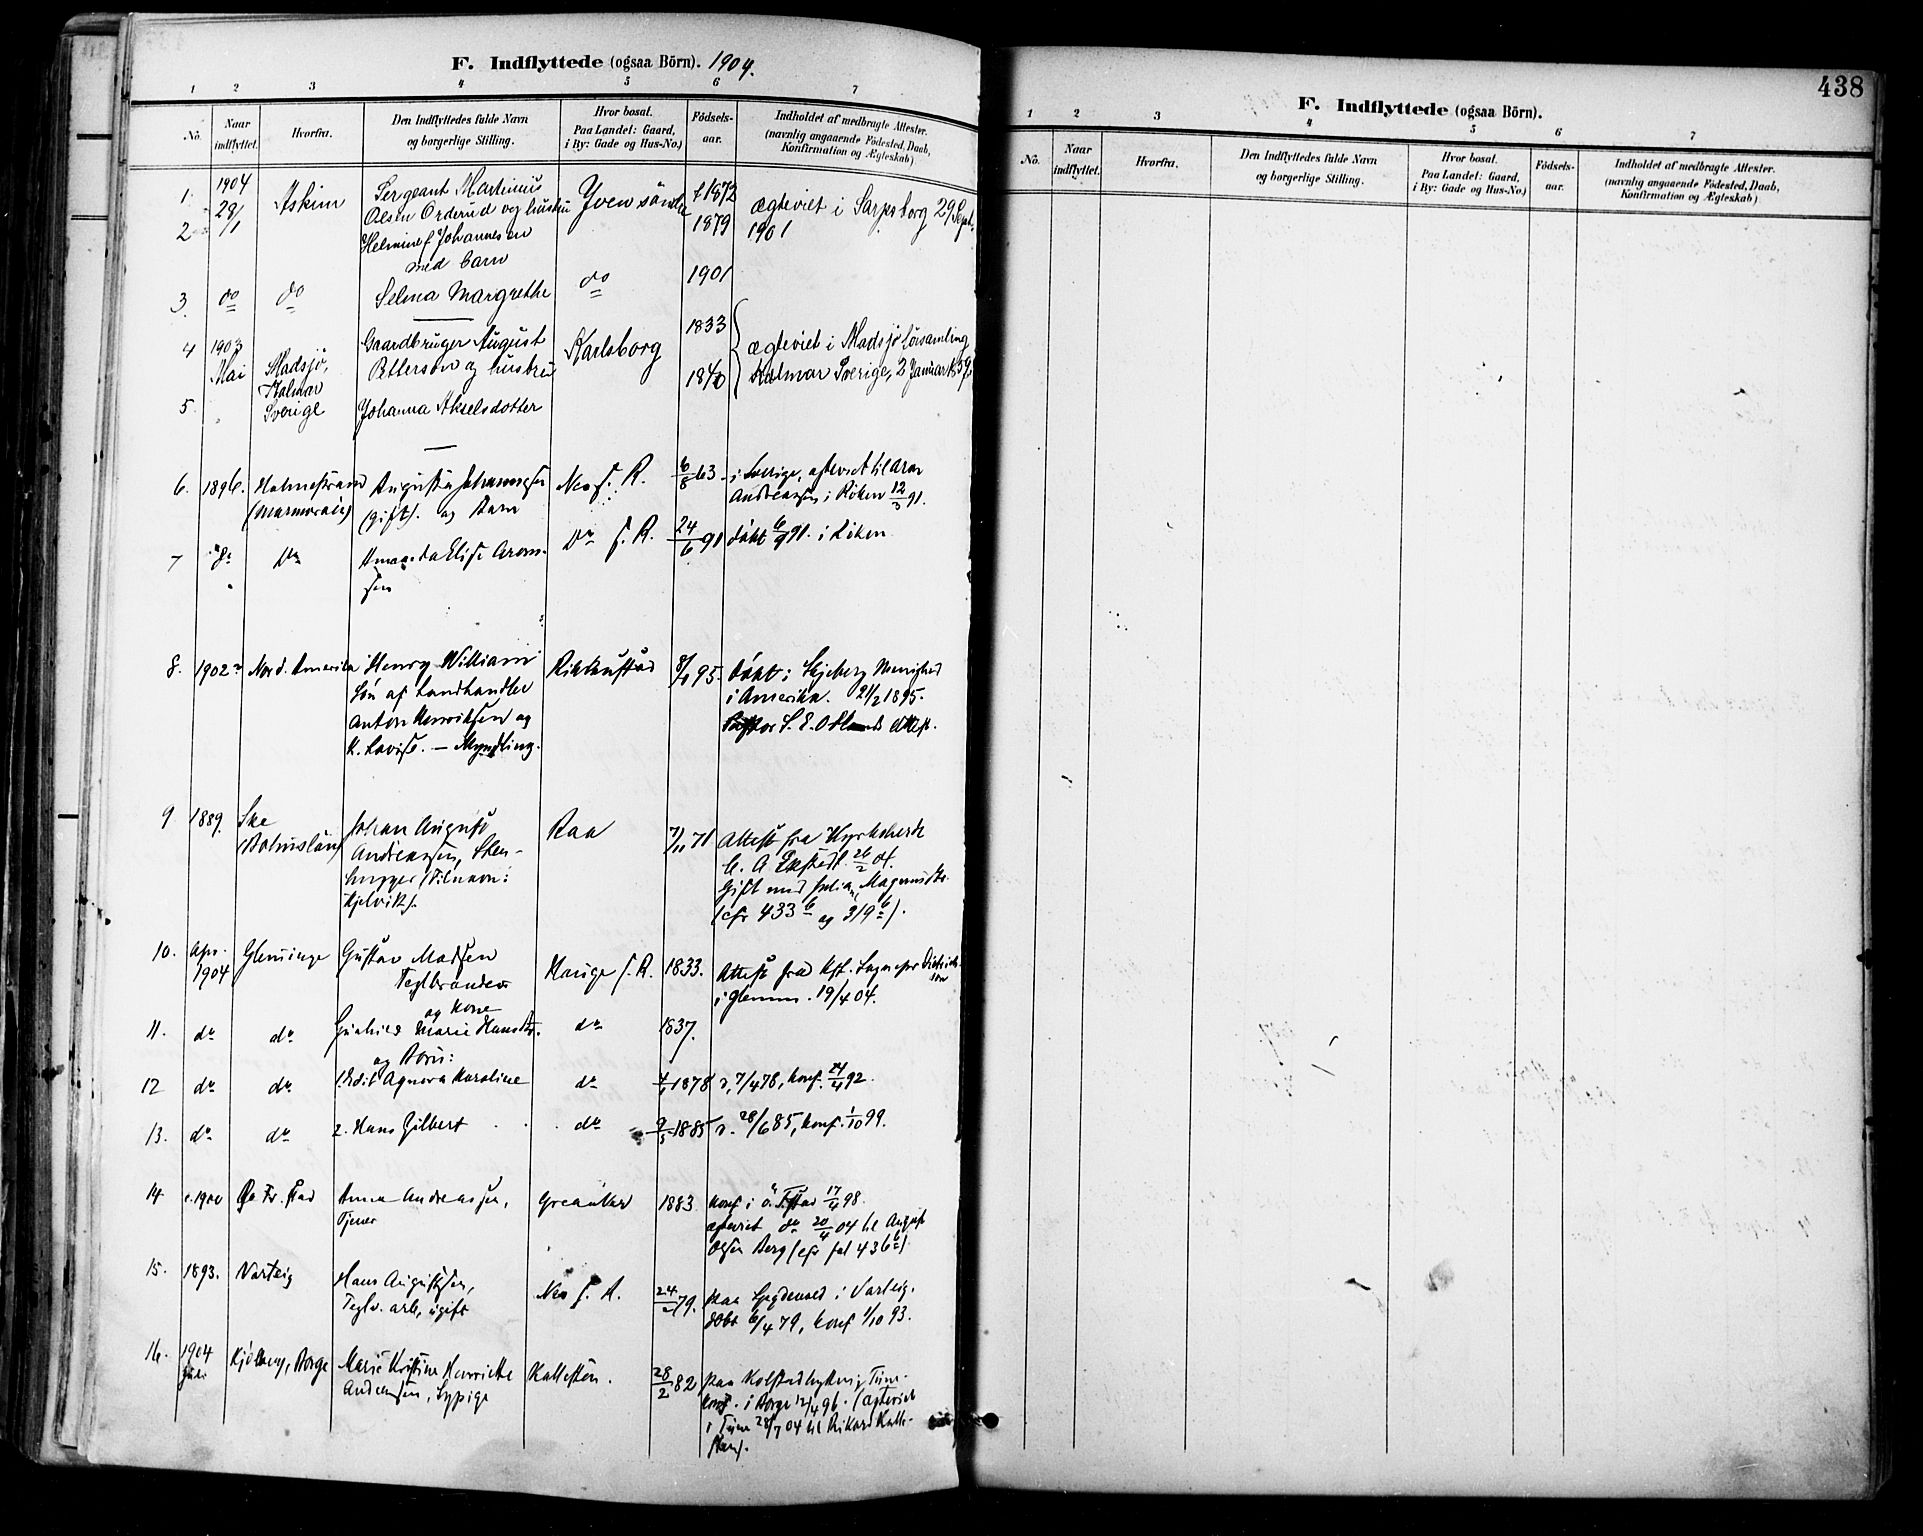 F. Indflyttede (ogsaa Börn). 1904.
1 2 3 4 5 6 7
No. Naar indflyttet. Hvorfra. Den Indflyttedes fulde Navn og borgerlige Stilling. Hvor bosat. Paa Landet: Gaard, i By: Gade og Hus-No.) Födsels-aar. Indholdet af medbragte Attester. (navnlig angaaende Födested, Daab, Konfirmation og Ægteskab)
1. 1904 Askim Sergeant Martinius 1872
2 28/1 Olsen Orderud og hustru Yven söndre ægteviet i Sarpsborg 29 Sept.
Helmine Johannesen 1879 1901
med barn
3. do do Selma Margrethe do 1901
4 1903 Gaardbruger August Karlsborg 1833 ægteviet i Madsjö forsamling
Mai Madsjö, Petterson og hustru 1840 Kalmar Sverige, 2 Januar
Kalmar
5. Sverige Johanna Akselsdotter
6. 1896. Holmestrand Augusta Johannessen Nes f. R. 63 i Sverige, ægteviet til Aron
(gift). og Barn Andreassen i Röken 12/3 91.
7 Do Amanda Elise Aron- Do f. R. 24/6 91 döbt 6/9 91. i Röken
sen
8. 1902 Nord. Amerika Henry William 95. Döbt i Skjeberg Menighed
Sön af Landhandler i Amerika. 21/2 1895.
Anton Henriksen og Pastor attest.
K. Lovise. — Myndling.
9 1889. Ske Johan August Raa 7/11 71 Attest fra Kyrkoherde
Andreassen, Sten- 26/2 04.
hugger Gift med Julia
(cfr 433 b og 319 b).
10. Apr. Glemminge Gustav Madsen Hauge f. R. 1833. Attest fra
1904 Teglbrænder i Glemm. 19/4 04.
og kone
11. do do Marie do 1837.
og Börn:
12 do do 1. Agnora Karoline do 1878 d. 7/4 78, konf. 24/4 92.
13. do do 2. Hans Gilbert do 1885 d. 28/6 85, konf. 1/10 99.
14 c. 1900 Ö. Fr. stad Anna Andreassen, Greaaker 1883 konf i ö. Fr.stad 17/4 98.
Tjener ægteviet do 20/4 04 til August
Olsen Berg (cfr fol 436 b).
15. 1893. Varteig Hans Augustsen, Nes f. R. 24/2 79. paa i Varteig.
Teglv. arb, ugift döbt 6/4 79, konf 1/10 93.
16. 1904 Kjölberg, Borge Marie Kristine Henriette Kallesten. 28/2 82 paa i Tune
Juli Andersen, konf. i Borge 12/4 96. (ægteviet
i Tune 28/7 04 til Rikard Kalle-
sten).
438
F. Indflyttede (ogsaa Börn).
1 2 3 4 5 6 7
No. Naar indflyttet. Hvorfra. Den Indflyttedes fulde Navn og borgerlige Stilling. Hvor bosat. Paa Landet: Gaard, i By: Gade og Hus-No.) Födsels-aar. Indholdet af medbragte Attester. (navnlig angaaende Födested, Daab, Konfirmation og Ægteskab)